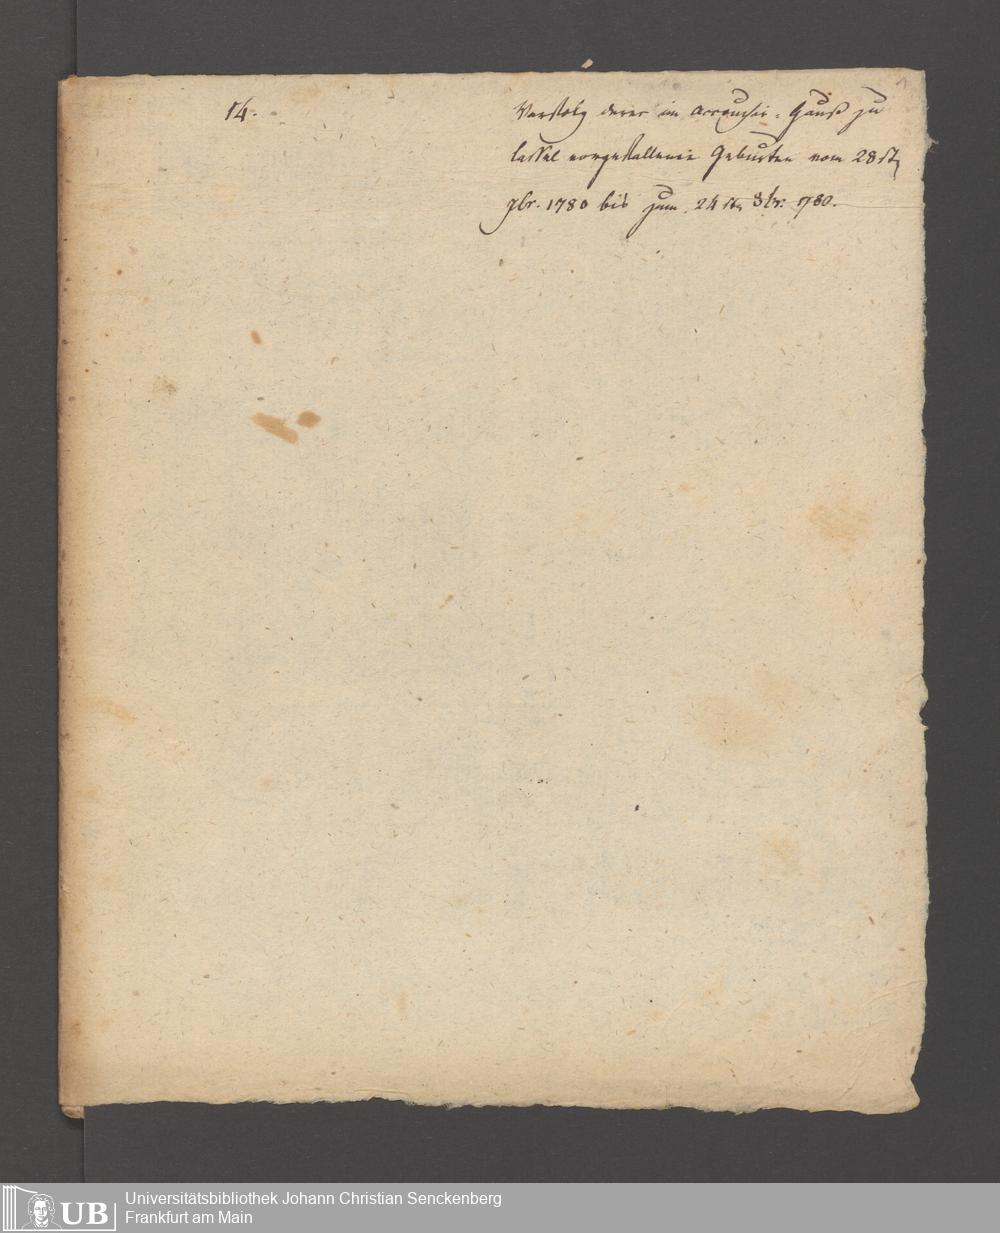 14.
Verfolg derer im Accouchir-Hauß zu
Cassel vorgefallenen Geburten vom 28st
7br. 1780 bis zum 24st 8br: 1780.
UB
Universitätsbibliothek Johann Christian Senckenberg
Frankfurt am Main